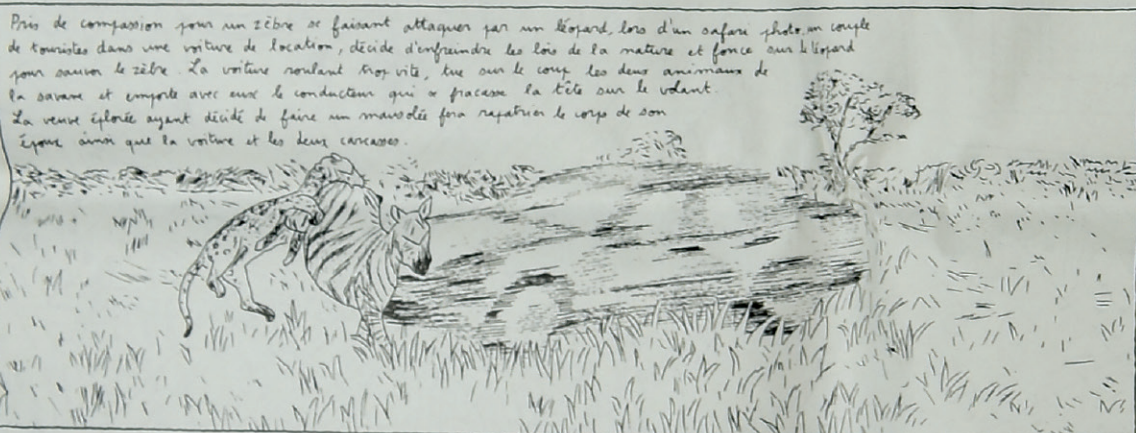 Pris de compassion pour un zèbre se faisant attaquer par un léopard, lors d'un safari photo, un couple
de touristes dans une voiture de location, décide d'enfreindre les lois de la nature et fonce sur le léopard
pour sauver le zèbre. La voiture roulant trop vite, tue sur le coup les deux animaux de
la savane et emporte avec eux le conducteur qui se fracasse la tête sur le volant.
La veuve éplorée ayant décidé de faire un mausolée fera rapatrier le corps de son
époux ainsi que la voiture et les deux carcasses.